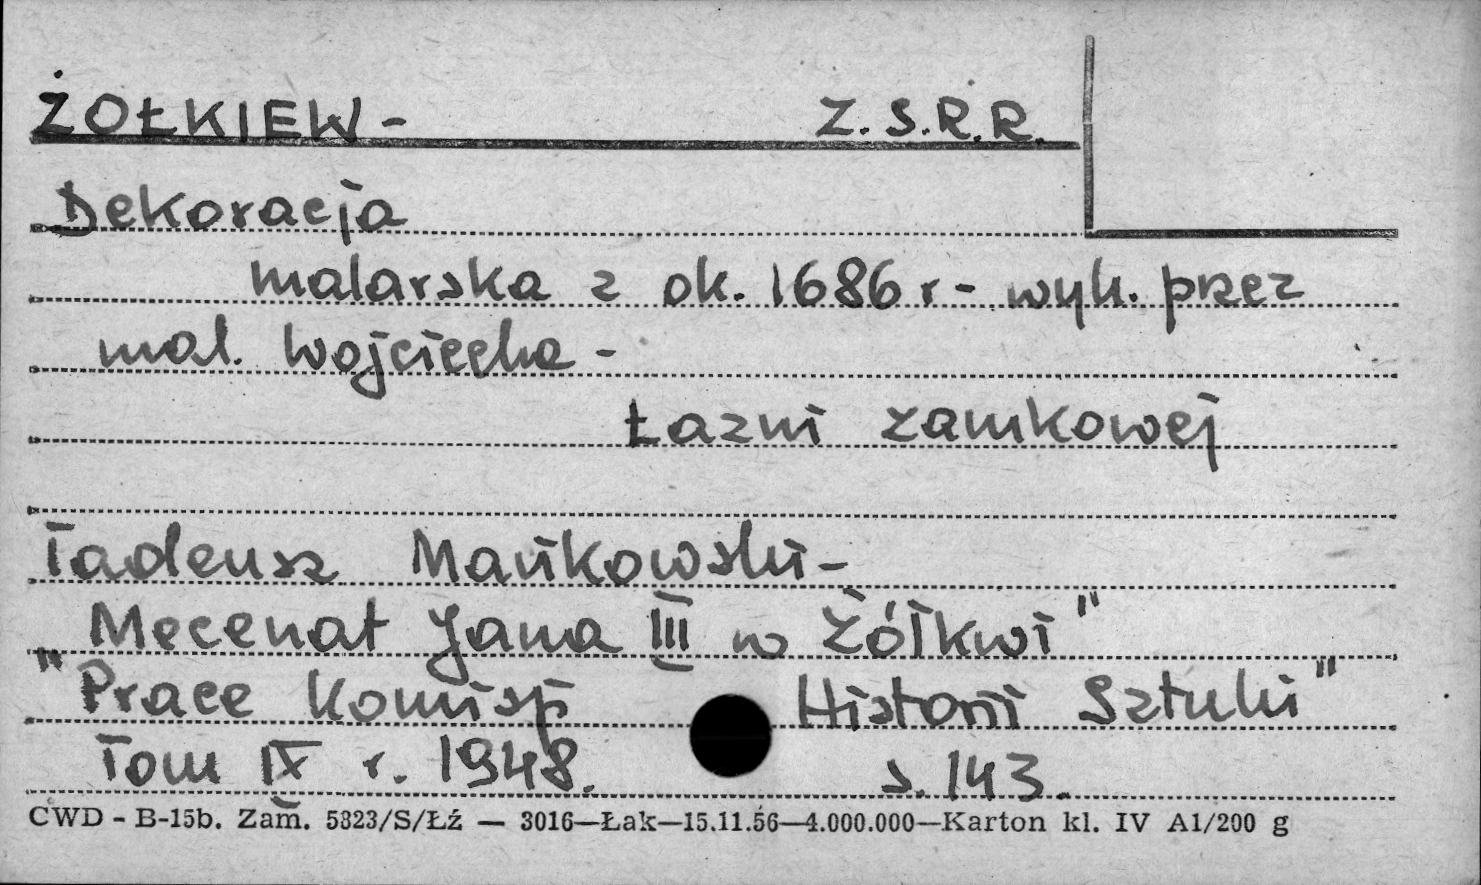 ŻOŁKIEW - Z.S.R.R.
Dekoracja
malarska z ok. 1686 r - wyk. przez
mal. Wojciecha -
Łazni zamkowej
Tadeusz Mańkowski -
Mecenat Jana III w Żółkwi"
"Prace Komisji Historii Sztuki"
Tom IX r. 1948. s. 143.
CWD - B-15b. Zam. 5323/S/Łź — 3016—Łak—15.11.56—4.000.000—Karton kl. IV A1/200 g